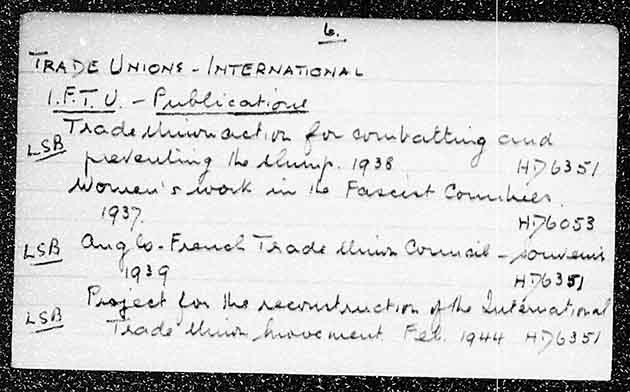 6.
TRADE UNIONS - INTERNATIONAL
I.F.T.U. - Publications
Trade Union action for combatting and
LSB preventing the slump. 1938 HD6351
Women's work in the Fascist Countries.
1937. HD6053
LSB Anglo-French Trade Union Council - souvenir
1939 HD6351
Project for the reconstruction of the International
LSB Trade Union Movement Feb. 1944 HD6351